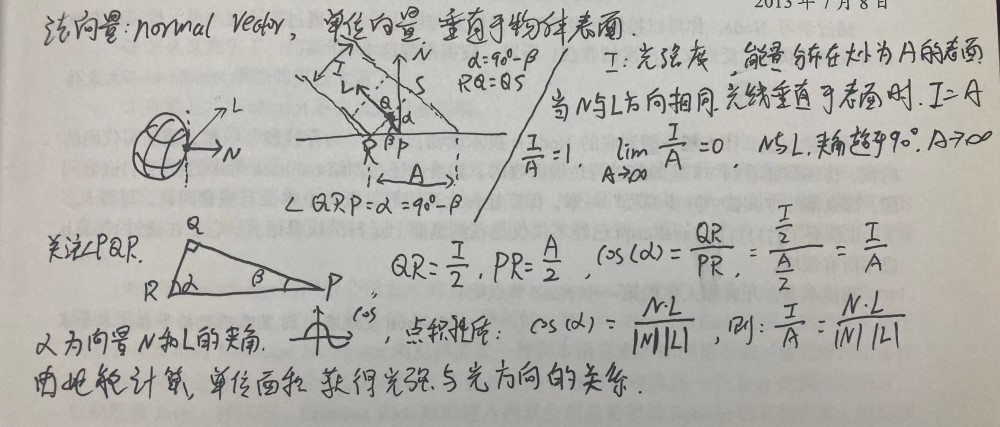 2013年7月8日
法向量: normal vector, 单位向量 垂直于物体表面
α=90°-β
RQ=QS
I: 光强度, 能量分布在大小为A的表面
当N与L方向相同, 光线垂直于表面时. I=A
I/A=1, lim A→∞ I/A=0, N与L夹角趋于90°. A→∞
L
N
I
L
N
S
Q
α
R
β
P
A
∠QRP=α=90°-β
关注∠PQR.
Q
R
α
β
P
QR=I/2, PR=A/2, cos(α)=QR/PR, =(I/2)/(A/2)=I/A
α为向量N和L的夹角. cos, 点积性质: cos(α)=N·L/|N||L|, 则: I/A=N·L/|N||L|
由此能计算, 单位面积 获得光强与光方向的关系.